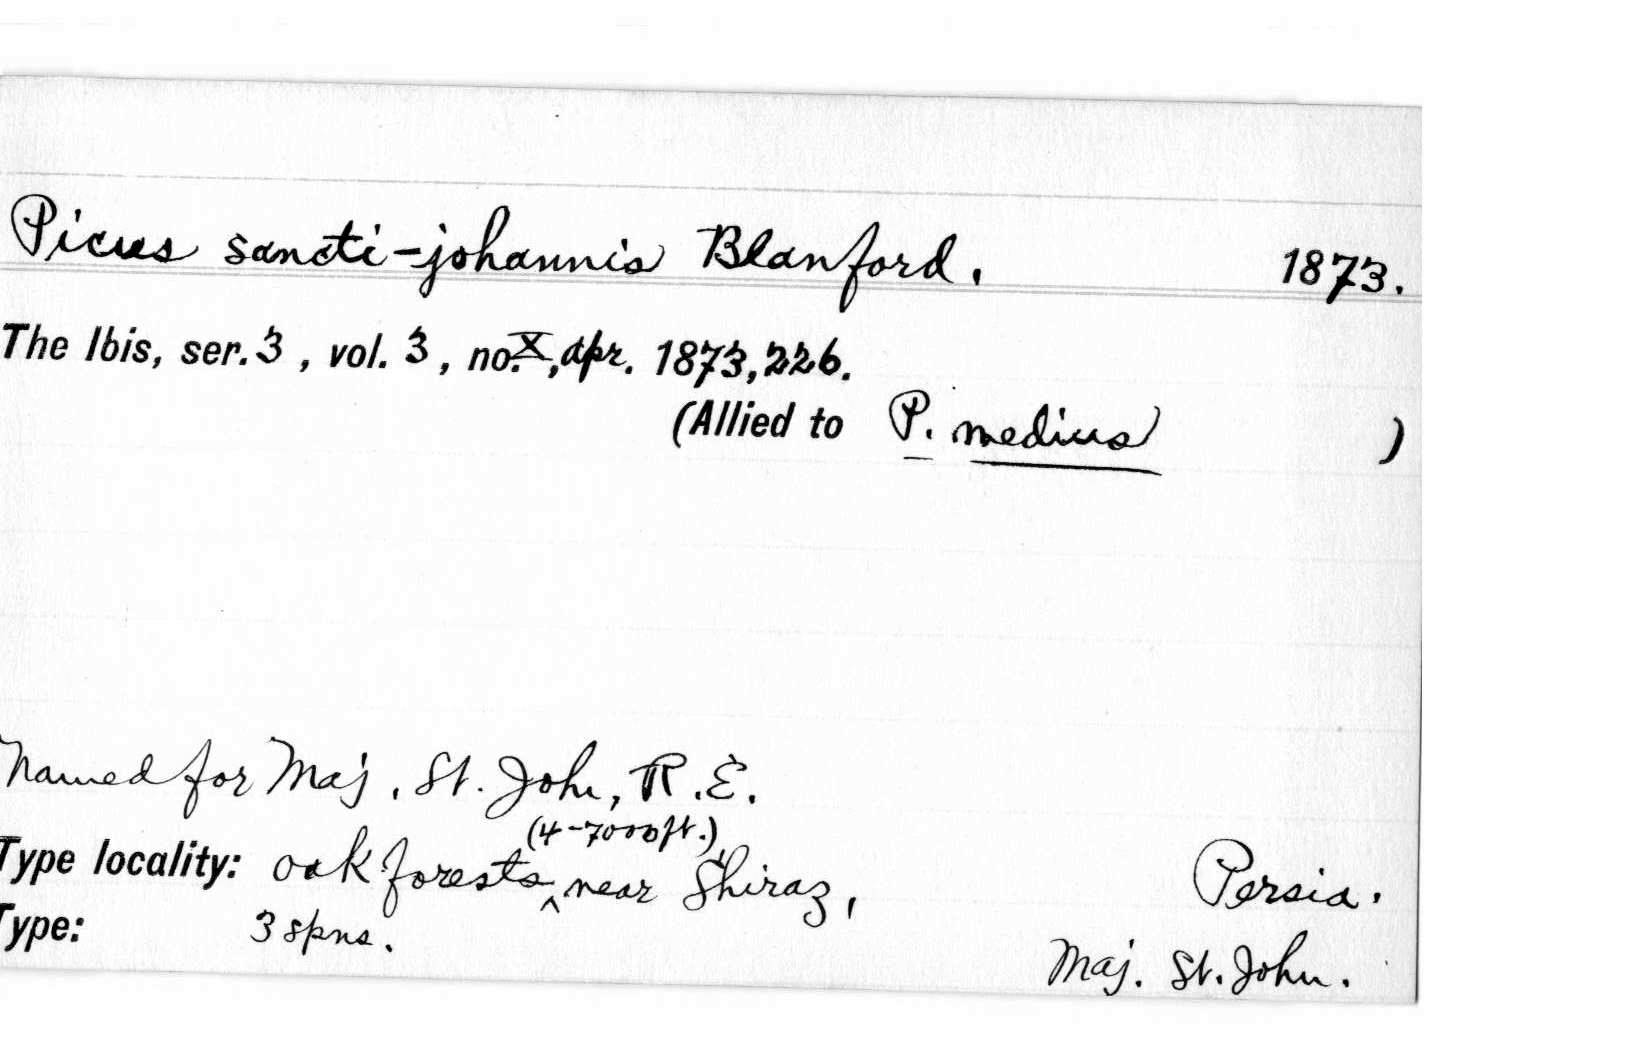 Picus sancti-johannis Blanford. 1873.
The Ibis, ser. 3, vol. 3, no. X, Apr. 1873, 226.
(Allied to P. medius )
Named for Maj. St. John, R.E.
(4-7000 ft.)
Type locality: oak forests ^ near Shiraz, Persia.
Type: 3 spns. Maj. St. John.